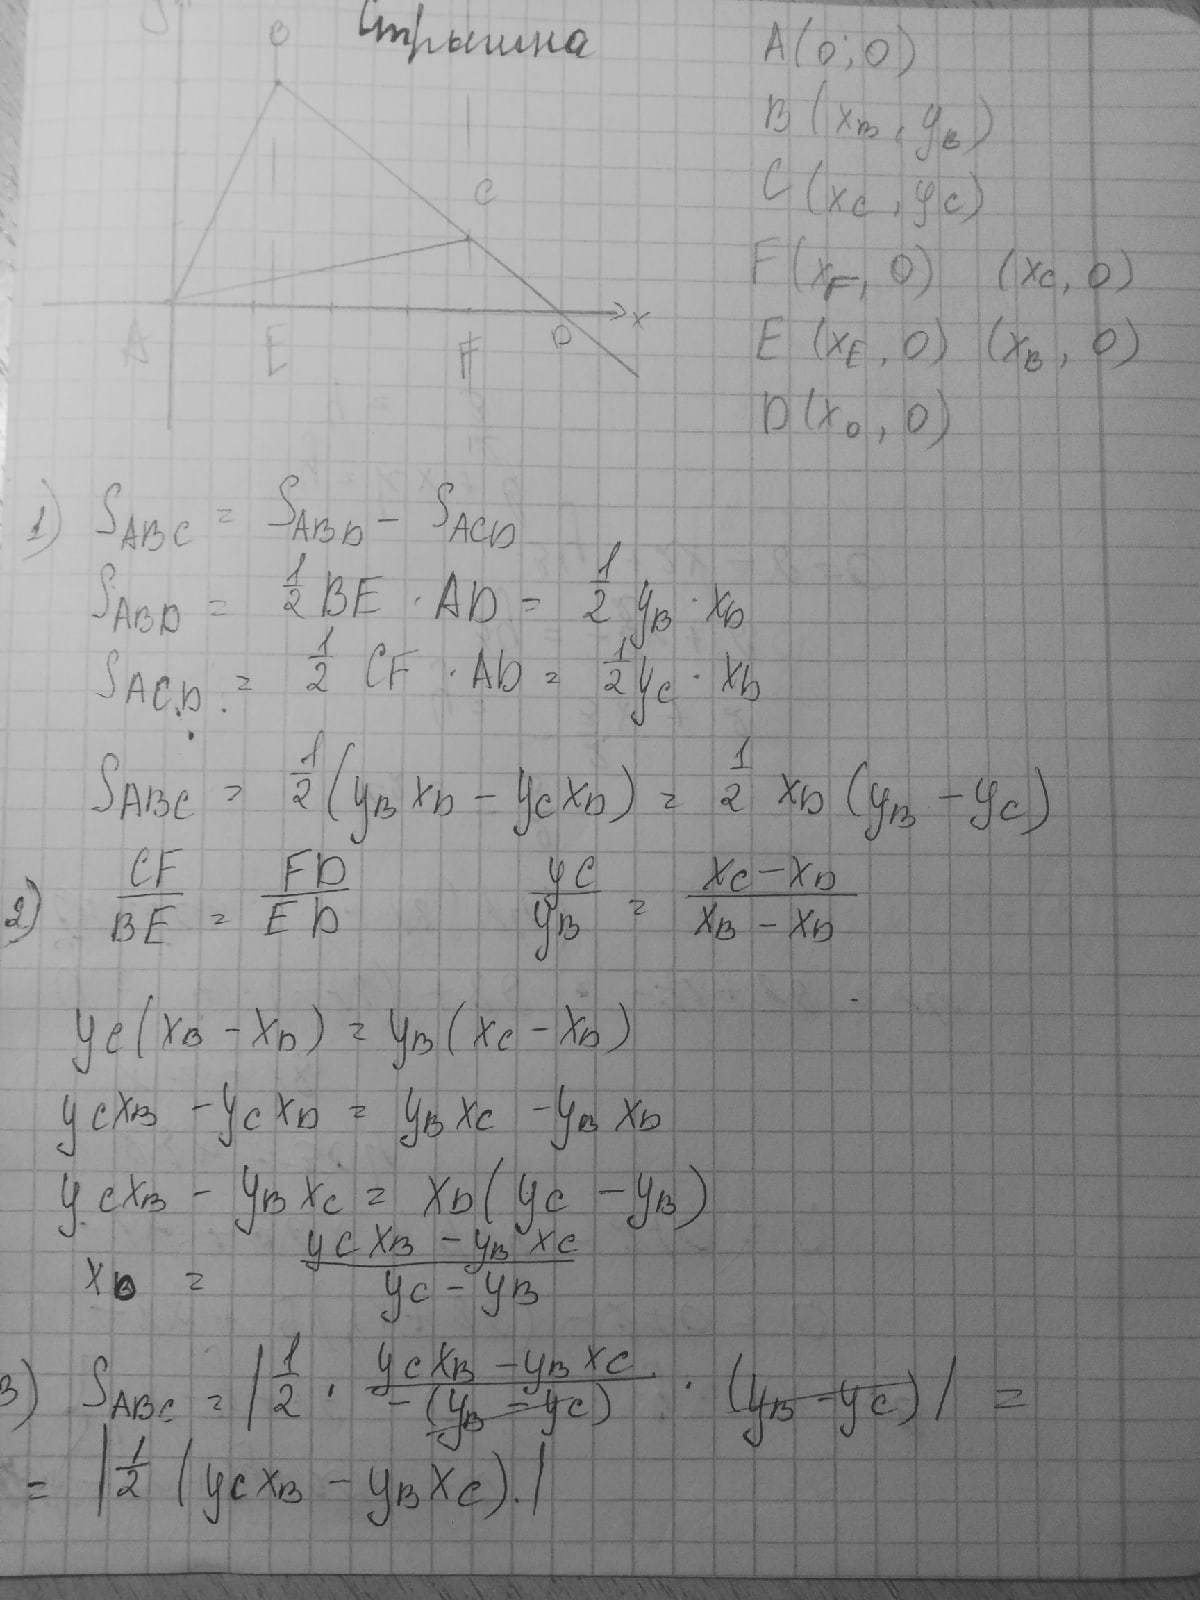 Стрышна
y
B
C
A E F D x
A(0; 0)
B(x_B, y_B)
C(x_C, y_C)
F(x_F, 0) (x_C, 0)
E(x_E, 0) (x_B, 0)
D(x_D, 0)
1) S_ABC = S_ABD - S_ACD
S_ABD = 1/2 BE · AD = 1/2 y_B · x_D
S_ACD = 1/2 CF · AD = 1/2 y_C · x_D
S_ABC = 1/2 (y_B x_D - y_C x_D) = 1/2 x_D (y_B - y_C)
2) CF/BE = FD/ED y_C/y_B = (x_C - x_D)/(x_B - x_D)
y_C(x_B - x_D) = y_B(x_C - x_D)
y_C x_B - y_C x_D = y_B x_C - y_B x_D
y_C x_B - y_B x_C = x_D (y_C - y_B)
x_D = (y_C x_B - y_B x_C)/(y_C - y_B)
3) S_ABC = |1/2 · (y_C x_B - y_B x_C)/(-(y_B - y_C)) · (y_B - y_C)| =
= |1/2 (y_C x_B - y_B x_C).|